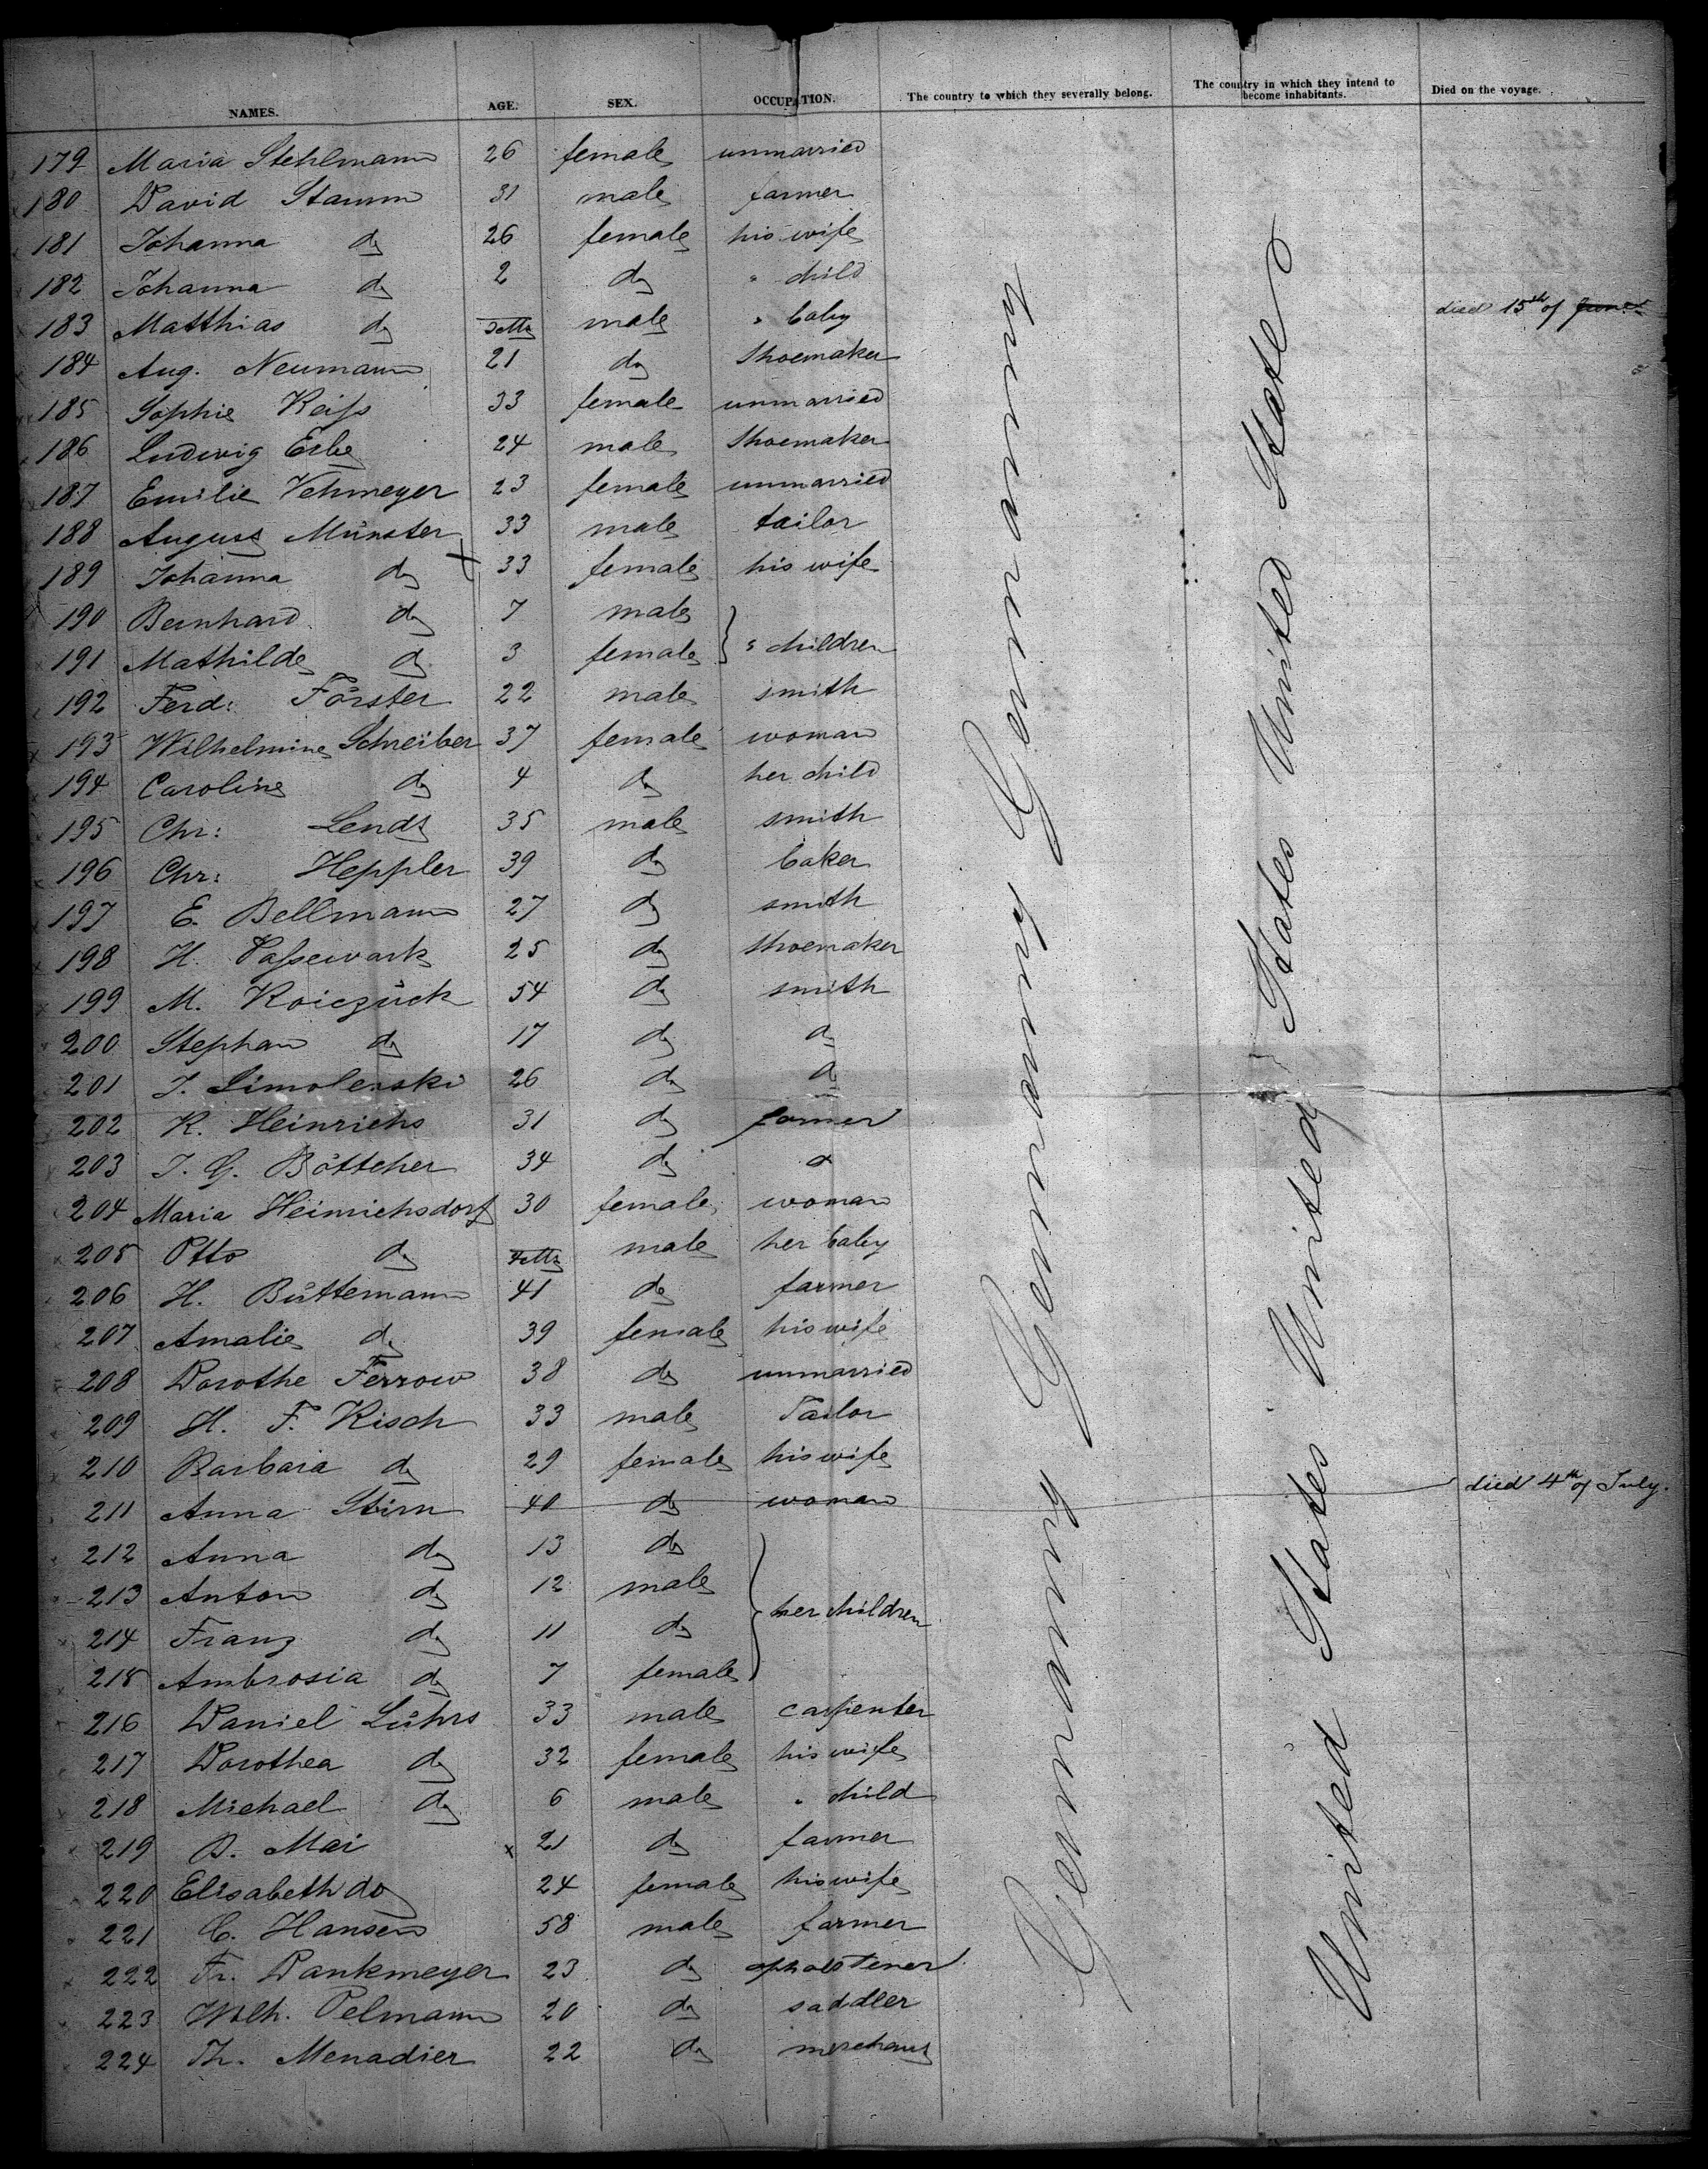 NAMES. AGE. SEX. OCCUPATION. The country to which they severally belong. The country in which they intend to become inhabitants. Died on the voyage.
179 Maria Stehlmann 26 female unmarried
180 David Stamm 31 male farmer
181 Johanna do 26 female his wife
182 Johanna do 2 do " child
183 Matthias do male " baby died 15th of June
184 Aug. Neumann 21 do Shoemaker
185 Sophie Reiss 33 female unmarried
186 Ludwig Erbe 24 male Shoemaker
187 Emilie Vehmeyer 23 female unmarried
188 August Münster 33 male tailor
189 Johanna do 33 female his wife
190 Bernhard do 7 male
191 Mathilde do 3 female } " children
192 Ferd: Förster 22 male smith
193 Wilhelmine Schreiber 37 female woman
194 Caroline do 4 do her child
195 Chr: Lendt 35 male smith
196 Chr: Heppler 39 do baker
197 E. Bellmann 27 do smith
198 H. Passewark 25 do Shoemaker
199 M. Roiczück 54 do smith
200 Stephan do 17 do do
201 J. Simolenski 26 do do
202 K. Heinrichs 31 do farmer
203 J. G. Böttcher 34 do do
204 Maria Heinrichsdorf 30 female woman
205 Otto do male her baby
206 H. Büttemann 41 do farmer
207 Amalie do 39 female his wife
208 Dorothe Ferrow 38 do unmarried
209 H. F. Risch 33 male Tailor
210 Barbara do 29 female his wife
211 Anna Stirn 40 do woman died 4th of July.
212 Anna do 13 do
213 Anton do 12 male
214 Franz do 11 do } her children
215 Ambrosia do 7 female
216 Daniel Lührs 33 male carpenter
217 Dorothea do 32 female his wife
218 Michael do 6 male " child
219 B. Mai x 21 do farmer
220 Elisabeth do 24 female his wife
221 C. Hansen 58 male farmer
222 Fr. Dankmeyer 23 do upholsterer
223 Wilh. Pelmann 20 do saddler
224 Th. Menadier 22 do merchant
Germany Germany Germany Germany
United States United States United States